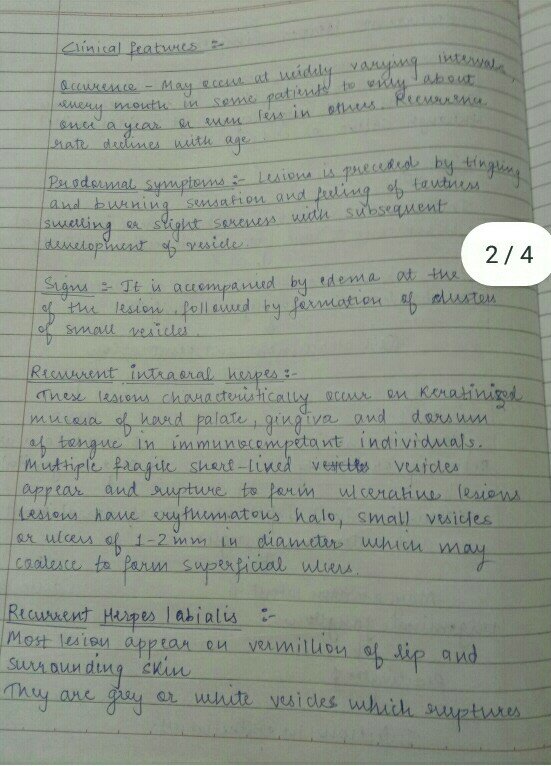 Clinical features :-
Occurence - May occur at widely varying intervals,
every month in some patients to only about
once a year or even less in others. Recurrence
rate declines with age.
Prodormal symptoms :- Lesions is preceded by tingling
and burning sensation and feeling of tautness
swelling or slight soreness with subsequent
development of vesicle.
2/4
Signs :- It is accompanied by edema at the
of the lesion, followed by formation of clusters
of small vesicles.
Recurrent intraoral herpes :-
These lesions characteristically occur on Keratinized
mucosa of hard palate, gingiva and dorsum
of tongue in immunocompetant individuals.
Multiple fragile short-lived vesicles
appear and rupture to form ulcerative lesions
Lesions have erythematous halo, small vesicles
or ulcers of 1-2 mm in diameter which may
coalesce to form superficial ulcers.
Recurrent Herpes labialis :-
Most lesion appear on vermillion of lip and
surrounding skin
They are grey or white vesicles which ruptures